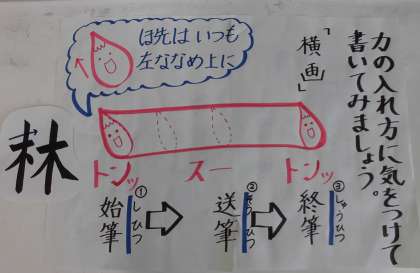 力の入れ方に気をつけて
書いてみましょう。
「横画」
ほ先は いつも
左ななめ上に
林
トンッ スー トンッ
① ② ③
始筆 しひつ
送筆 そうひつ
終筆 しゅうひつ